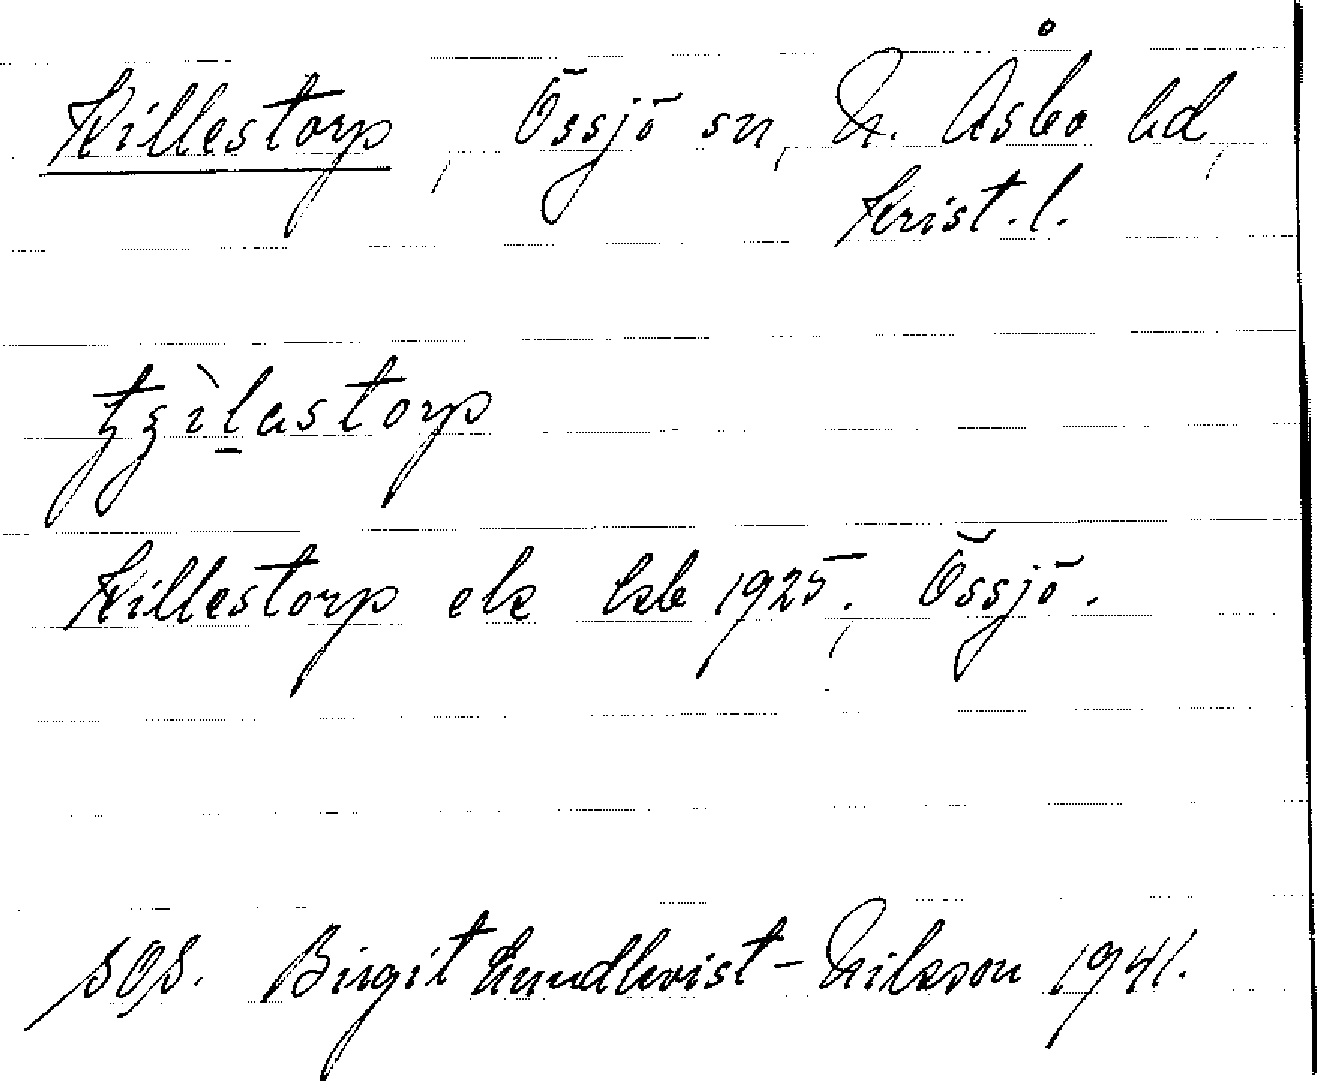 Killestorp, Össjö sn, N. Åsbo hd,
Krist. l.
Killestorp ek kb 1925, Össjö.
sos. Birgit Lundkvist-Nilsson 1941.